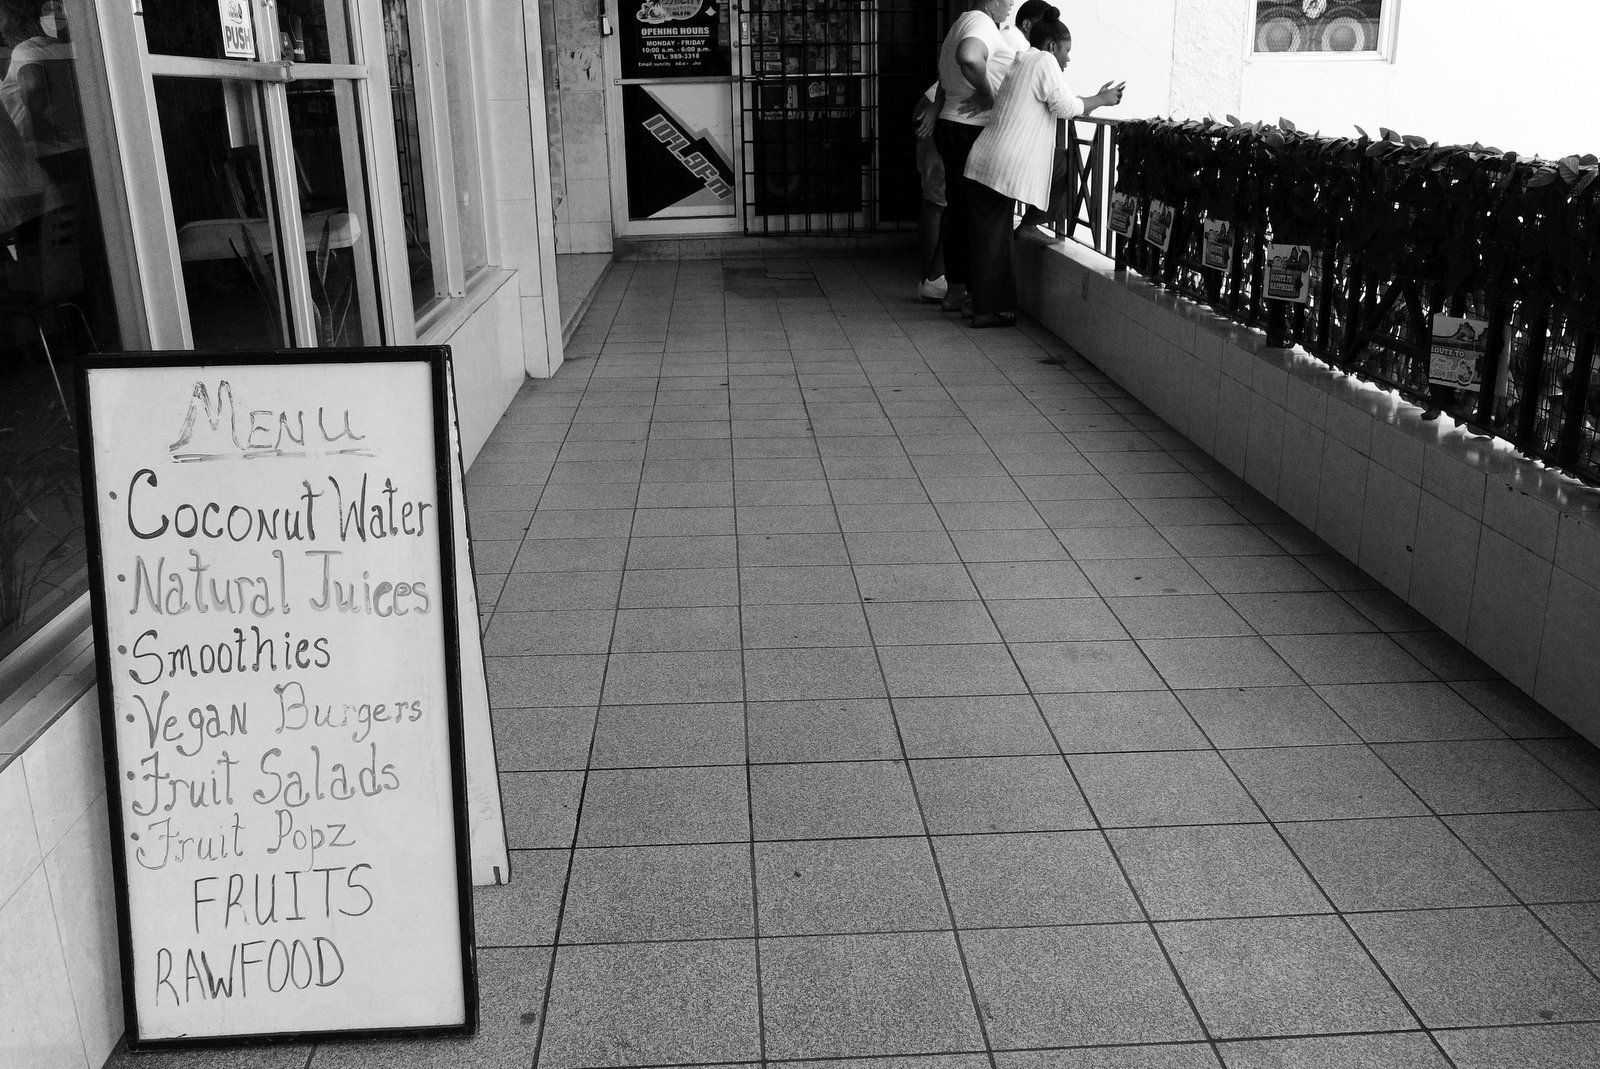 PUSH
OPENING HOURS
MONDAY - FRIDAY
10:00 a.m. - 6:00 p.m.
TEL: 989-3318
104.9FM
MENU
• Coconut Water
• Natural Juices
• Smoothies
• Vegan Burgers
• Fruit Salads
• Fruit Popz
FRUITS
RAWFOOD
ROUTE TO
HAPPINESS
ROUTE TO